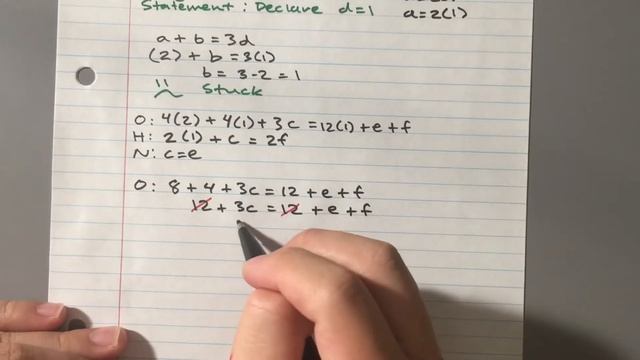 Statement: Declare d=1
a=2(1)
a+b=3d
(2)+b=3(1)
b=3-2=1
Stuck
O: 4(2)+4(1)+3c=12(1)+e+f
H: 2(1)+c=2f
N: c=e
O: 8+4+3c=12+e+f
12+3c=12+e+f